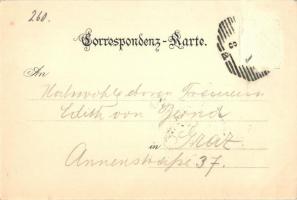 260.
Correspondenz-Karte.
An
Hochwohlgeboren Fräulein
Edith von
in Graz
Annenstraße 37.